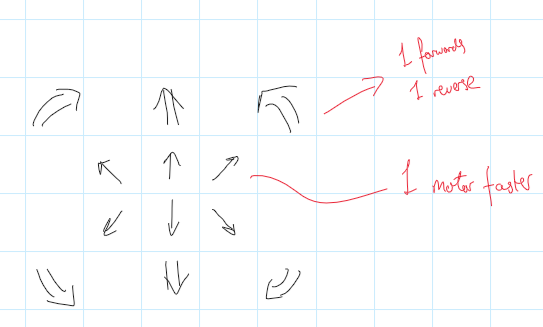 1 forwards
1 reverse
1 motor faster